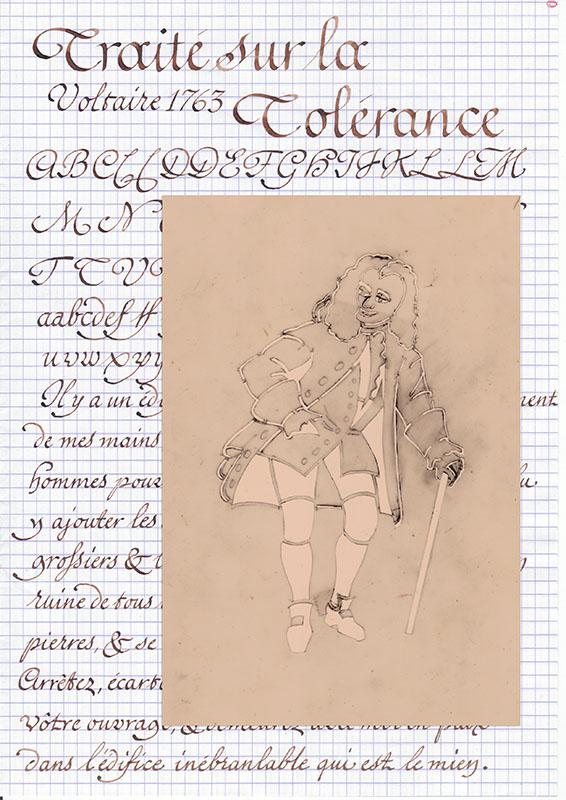 Traité sur la
Voltaire 1763 Tolérance
A B C C D D E F G H I J K L L E M
M N
T T V
a a b c d e f
u v w x y
Il y a un ment
de mes mains
hommes pour
y ajouter les
grossiers &
ruine de tous
pierres, & se
Arrêtez,
vôtre ouvrage, & demeurez avec moi en paix
dans l'édifice inébranlable qui est le mien.